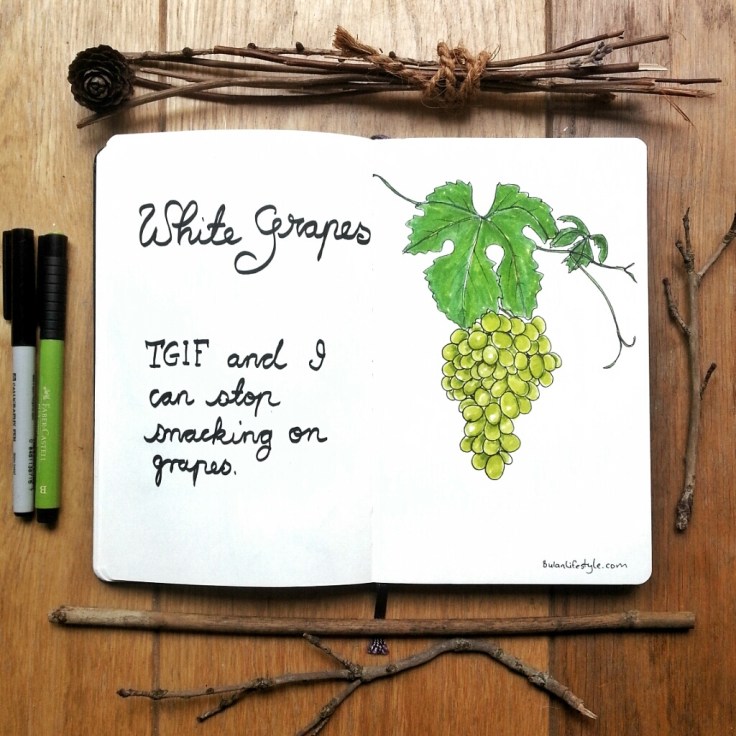 White Grapes
TGIF and I
can stop
snacking on
grapes.
Bulanlifestyle.com
FABER-CASTELL
B